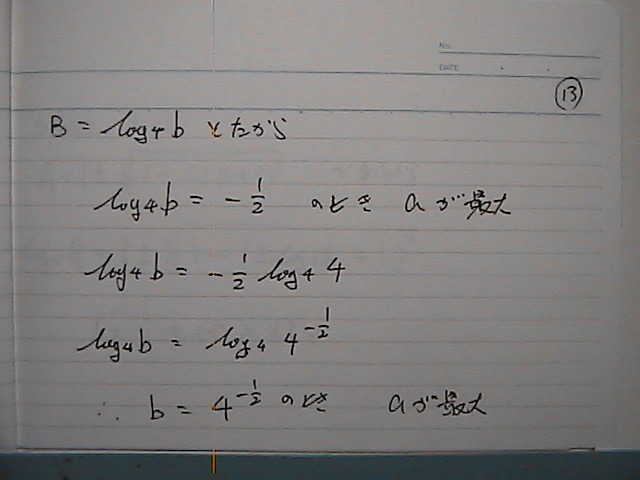 No.
DATE
13
B = log₄b とたから
log₄b = -1/2 のとき aが最大
log₄b = -1/2 log₄4
log₄b = log₄4^(-1/2)
∴ b = 4^(-1/2) のとき aが最大